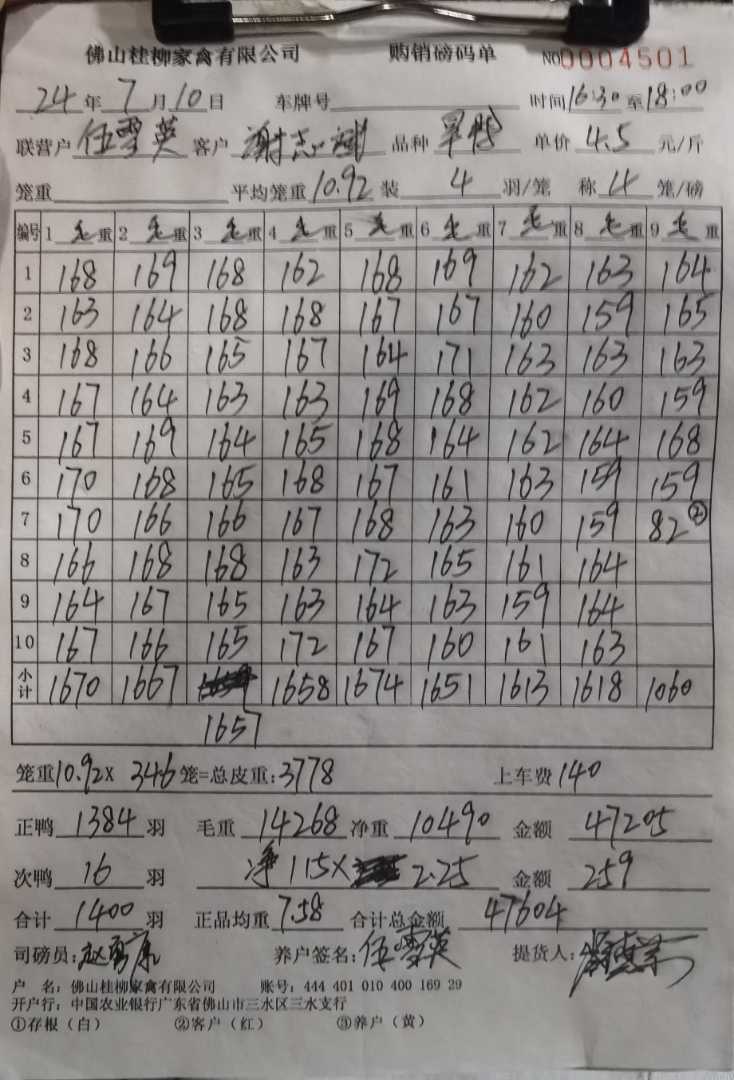 佛山桂柳家禽有限公司 购销磅码单 NO0004501
24年7月10日 车牌号 时间16:30至18:00
联营户 伍雪英 客户 谢志斌 品种 旱鸭 单价 4.5 元/斤
笼重 平均笼重10.92 装 4 羽/笼 称 4 笼/磅
编号 1 毛重 2 毛重 3 毛重 4 毛重 5 毛重 6 毛重 7 毛重 8 毛重 9 毛重
1 168 169 168 162 168 169 162 163 164
2 163 164 168 168 167 167 160 159 165
3 168 166 165 167 164 171 163 163 163
4 167 164 163 163 169 168 162 160 159
5 167 169 164 165 168 164 162 164 168
6 170 168 165 168 167 161 163 159 159
7 170 166 166 167 168 163 160 159 82②
8 166 168 168 163 172 165 161 164
9 164 167 165 163 164 163 159 164
10 167 166 165 172 167 160 161 163
小计 1670 1667 1658 1674 1651 1613 1618 1060
1657
笼重10.92× 346 笼=总皮重:3778 上车费 140
正鸭 1384 羽 毛重 14268 净重 10490 金额 47205
次鸭 16 羽 净 115× 2.25 金额 259
合计 1400 羽 正品均重 7.58 合计总金额 47604
司磅员: 赵勇康 养户签名: 伍雪英 提货人:
户 名: 佛山桂柳家禽有限公司 账号: 444 401 010 400 169 29
开户行: 中国农业银行广东省佛山市三水区三水支行
①存根(白) ②客户(红) ③养户(黄)